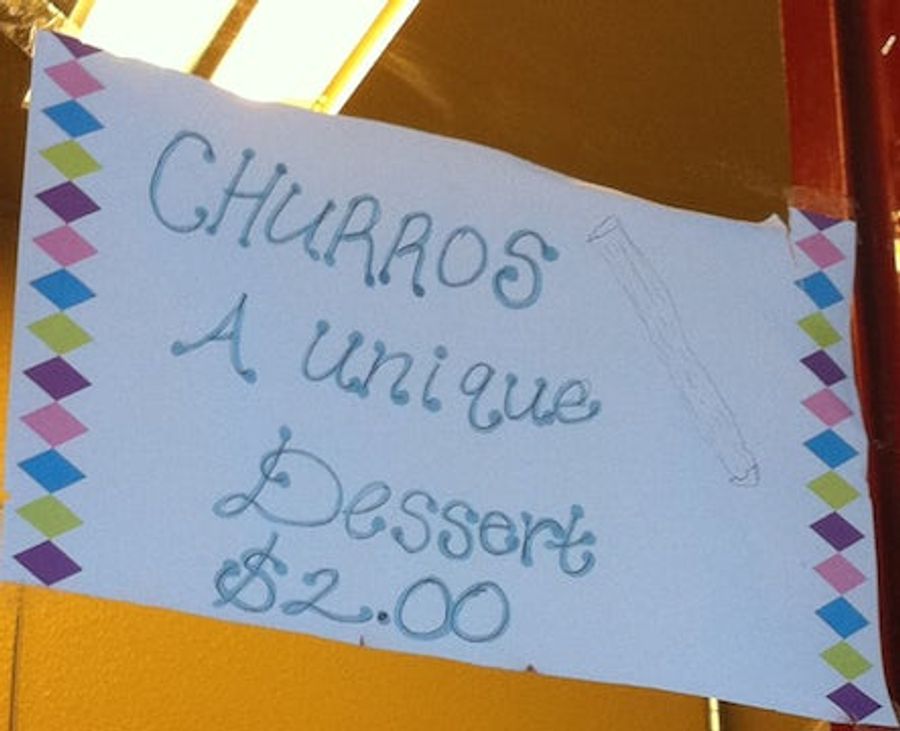 CHURROS
A unique
Dessert
$2.00